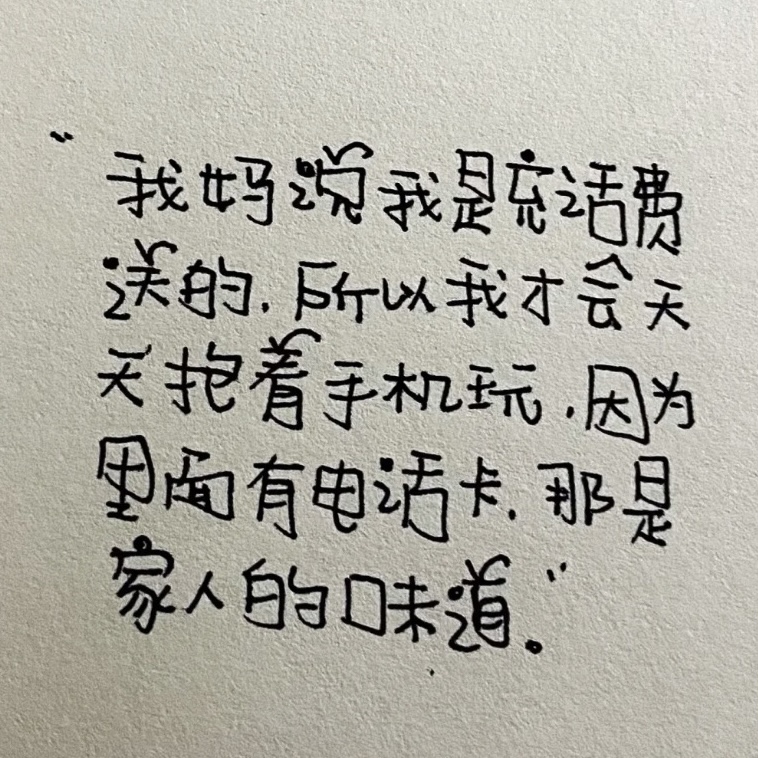 “我妈说我是充话费
送的,所以我才会天
天抱着手机玩,因为
里面有电话卡,那是
家人的味道。”